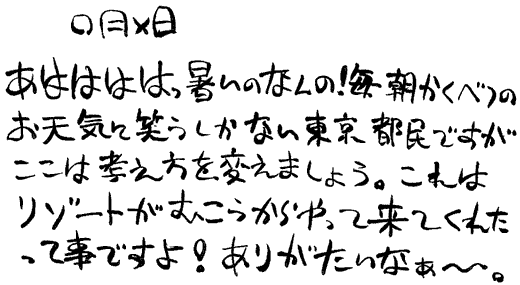 ○月×日
あはははは、暑いのなんの!毎朝かくべつの
お天気で笑うしかない東京都民ですが
ここは考え方を変えましょう。これは
リゾートがむこうからやって来てくれた
って事ですよ!ありがたいなぁ〜〜。